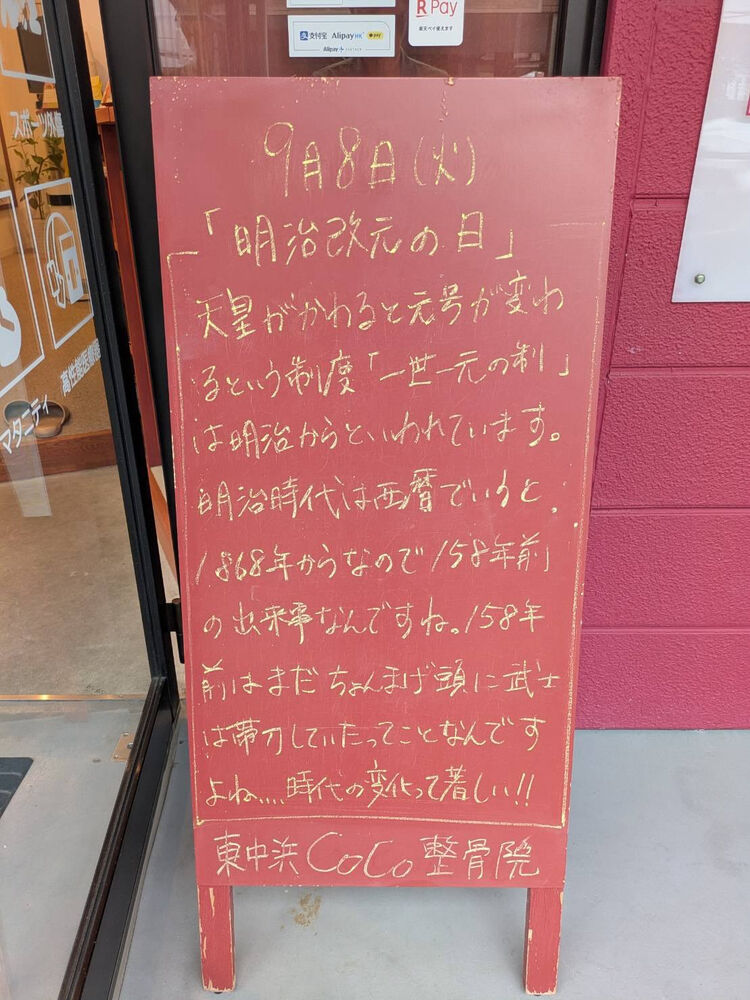 支付宝 AlipayHK pay
Alipay+ PARTNER
R Pay
楽天ペイ使えます
スポーツ外傷
マタニティ
9月8日(火)
「明治改元の日」
天皇がかわると元号が変わ
るという制度「一世一元の制」
は明治からといわれています。
明治時代は西暦でいうと、
1868年からなので158年前
の出来事なんですね。158年
前はまだちょんまげ頭に武士
は帯刀していたってことなんです
よね....時代の変化って著しい!!
東中浜CoCo整骨院